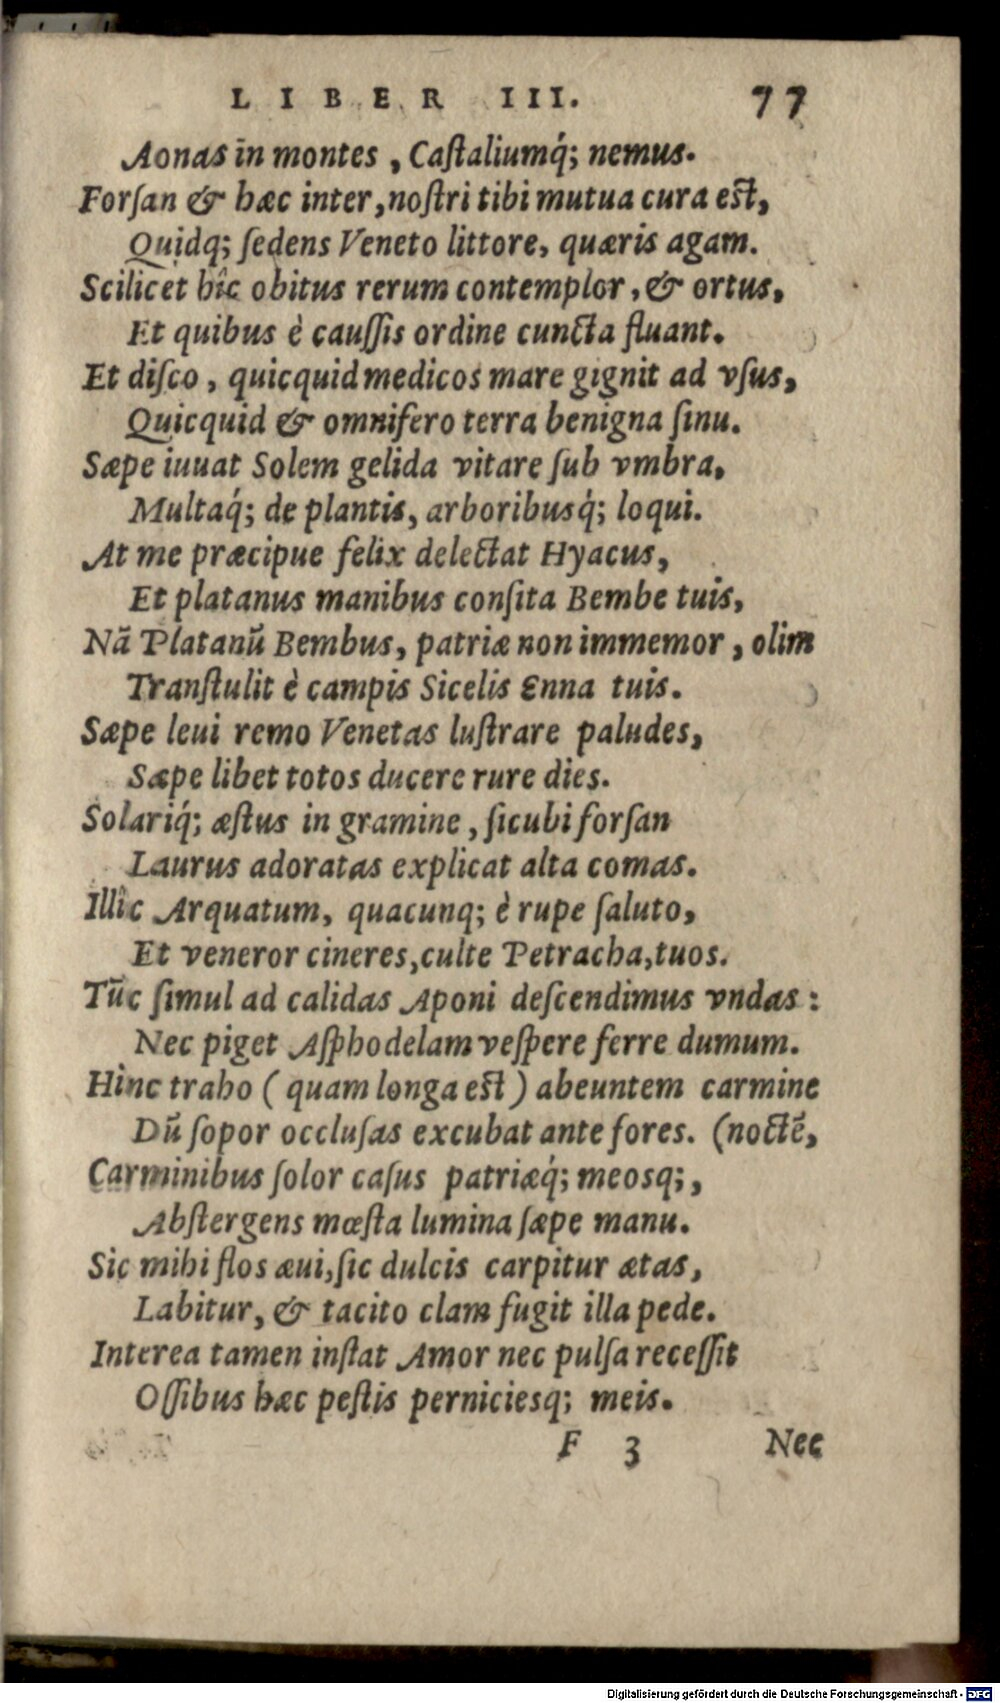 LIBER III. 77
Aonas in montes, Castaliumq́; nemus.
Forſan & hæc inter, noſtri tibi mutua cura eſt,
Quidq; ſedens Veneto littore, quæris agam.
Scilicet hîc obitus rerum contemplor, & ortus,
Et quibus è cauſſis ordine cuncta fluant.
Et diſco, quicquid medicos mare gignit ad vſus,
Quicquid & omnifero terra benigna ſinu.
Sæpe iuuat Solem gelida vitare ſub vmbra,
Multaq́; de plantis, arboribusq́; loqui.
At me præcipue felix delectat Hyacus,
Et platanus manibus conſita Bembe tuis,
Nā Platanū Bembus, patriæ non immemor, olim
Tranſtulit è campis Sicelis Enna tuis.
Sæpe leui remo Venetas luſtrare paludes,
Sæpe libet totos ducere rure dies.
Solariq́; æſtus in gramine, ſicubi forſan
Laurus adoratas explicat alta comas.
Illîc Arquatum, quacunq; è rupe ſaluto,
Et veneror cineres, culte Petracha, tuos.
Tūc ſimul ad calidas Aponi deſcendimus vndas:
Nec piget Aſphodelam veſpere ferre dumum.
Hinc traho (quam longa eſt) abeuntem carmine
Dū ſopor occluſas excubat ante fores. (noctē,
Carminibus ſolor caſus patriæq́; meosq;,
Abſtergens mœſta lumina ſæpe manu.
Sic mihi flos æui, ſic dulcis carpitur ætas,
Labitur, & tacito clam fugit illa pede.
Interea tamen inſtat Amor nec pulſa receſſit
Oſſibus hæc peſtis perniciesq; meis.
F 3 Nec
Digitalisierung gefördert durch die Deutsche Forschungsgemeinschaft - DFG